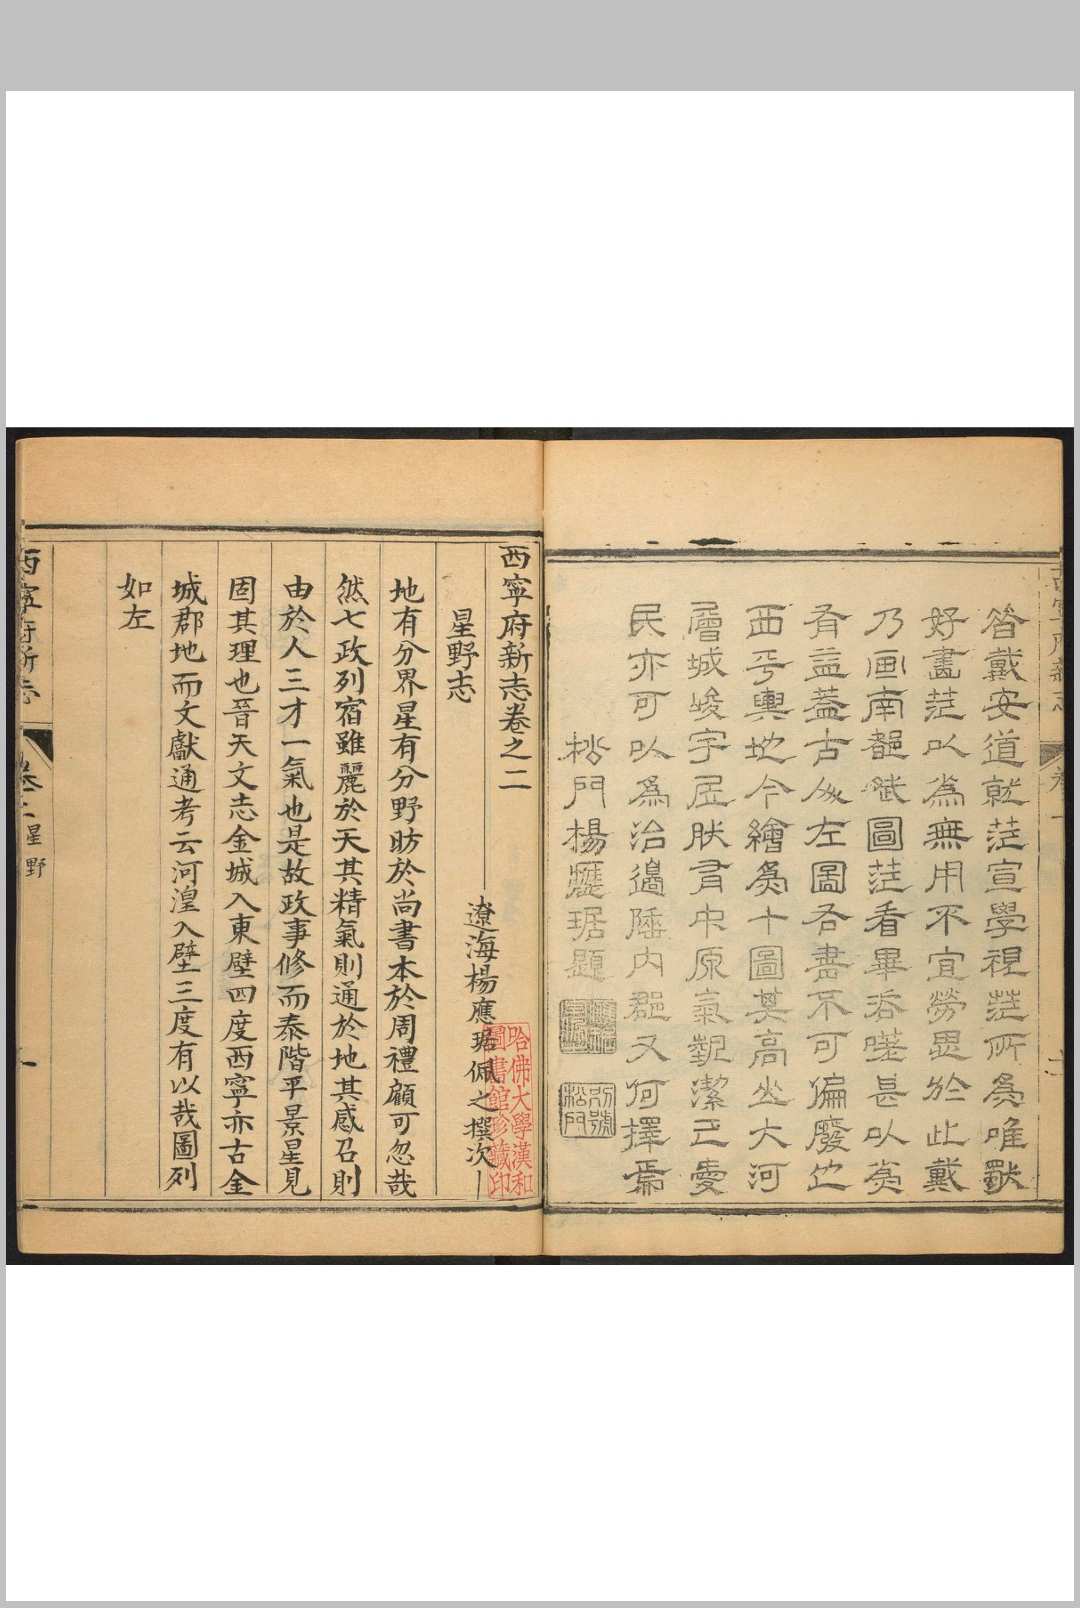 昝戴安道就范宣學視范所爲唯獸
好畫范以爲無用不宜勞思於此戴
乃画南都賦圖范看畢咨嗟甚以爲
有益蓋古人左圖右書不可偏廢也
西平輿地今繪爲十圖其高山大河
層城峻宇居肰有中原氣觀潔己愛
民亦可以爲治邊陲内郡又何擇焉
松門楊應琚題
別號松門
西寧府新志卷之二
遼海楊應琚佩之撰次
星野志
地有分界星有分野昉於尚書本於周禮顧可忽哉
然七政列宿雖麗於天其精氣則通於地其感召則
由於人三才一氣也是故政事修而泰階平景星見
固其理也晉天文志金城入東壁四度西寧亦古金
城郡地而文獻通考云河湟入壁三度有以哉圖列
如左
西寧府新志
卷二
星野
一
哈佛大學漢和
圖書館珍藏印